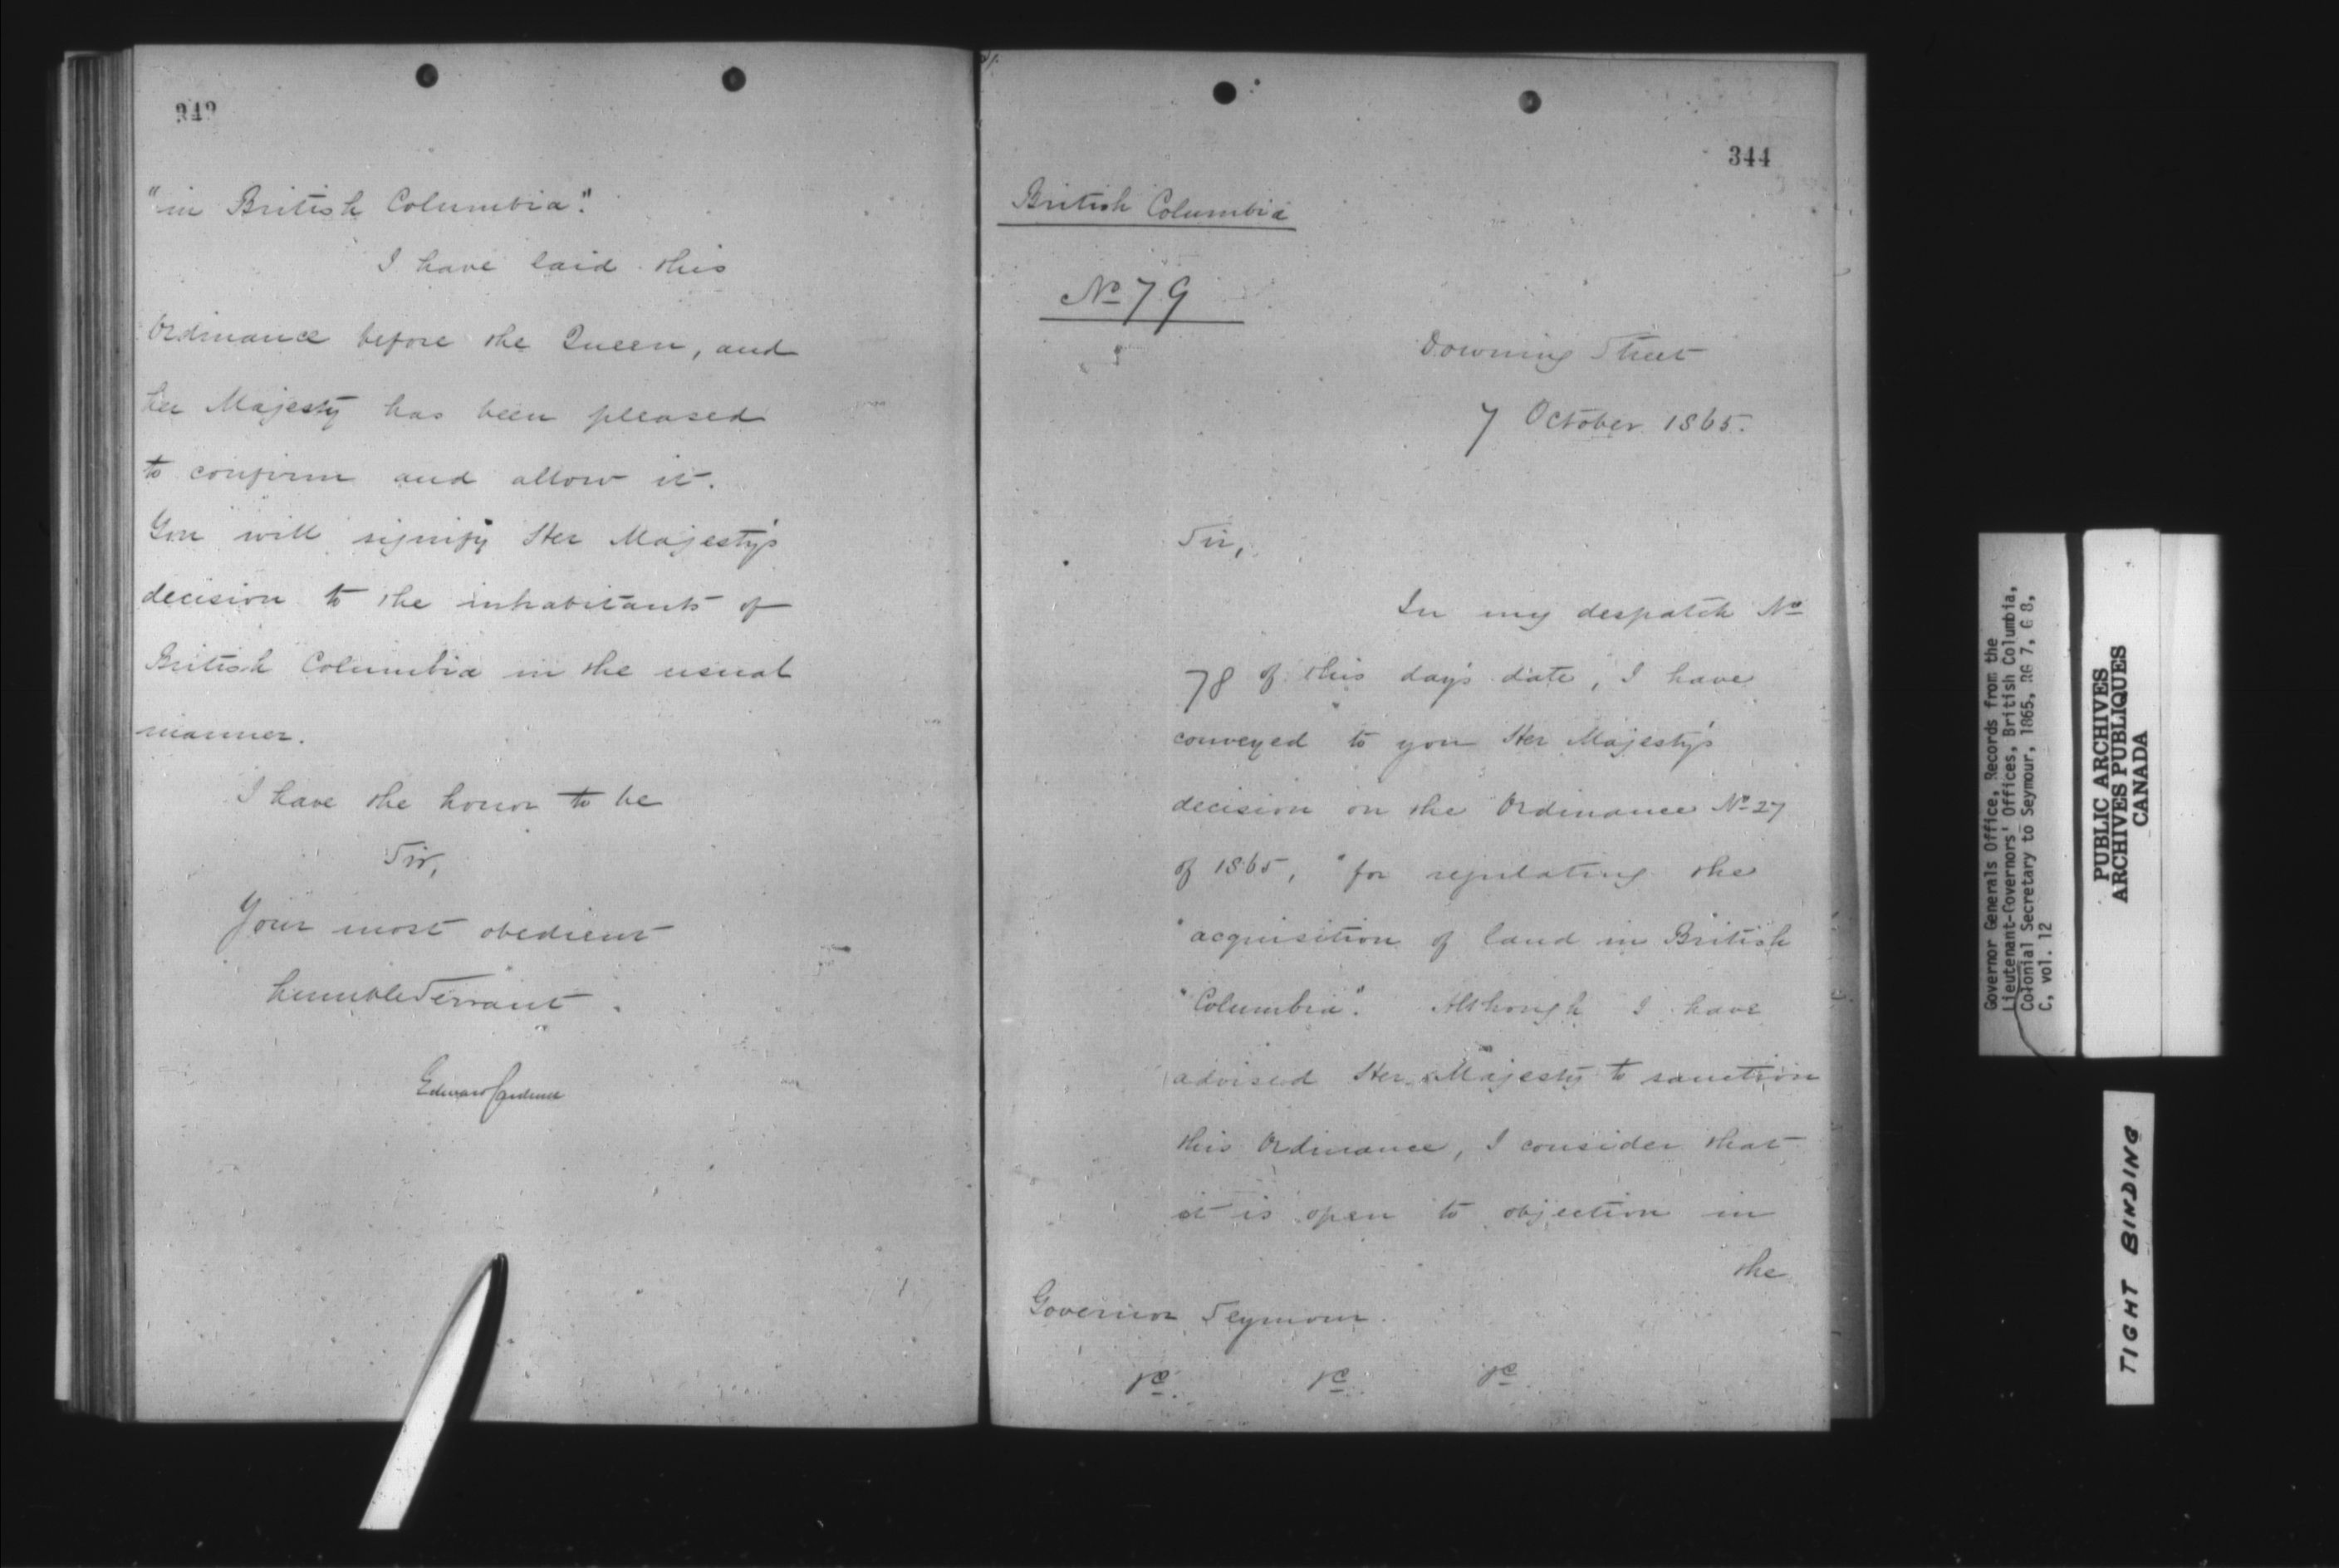 343
"in British Columbia".
I have laid this
Ordinance before the Queen, and
her Majesty has been pleased
to confirm and allow it.
You will signify Her Majesty's
decision to the inhabitants of
British Columbia in the usual
manner.
I have the honor to be
Sir,
Your most obedient
humble Servant.
Edward Cardwell
344
British Columbia
No 79
Downing Street
7 October 1865.
Sir,
In my despatch No
78 of this day's date, I have
conveyed to you Her Majesty's
decision on the Ordinance No 27
of 1865, "for regulating the
"acquisition of land in British
"Columbia". Although I have
advised Her Majesty to sanction
this Ordinance, I consider that
it is open to objection in
the
Governor Seymour.
&c. &c. &c.
Governor Generals Office, Records from the
Lieutenant-Governors' Offices, British Columbia,
Colonial Secretary to Seymour, 1865, RG 7, G 8,
C, vol. 12
PUBLIC ARCHIVES
ARCHIVES PUBLIQUES
CANADA
TIGHT BINDING